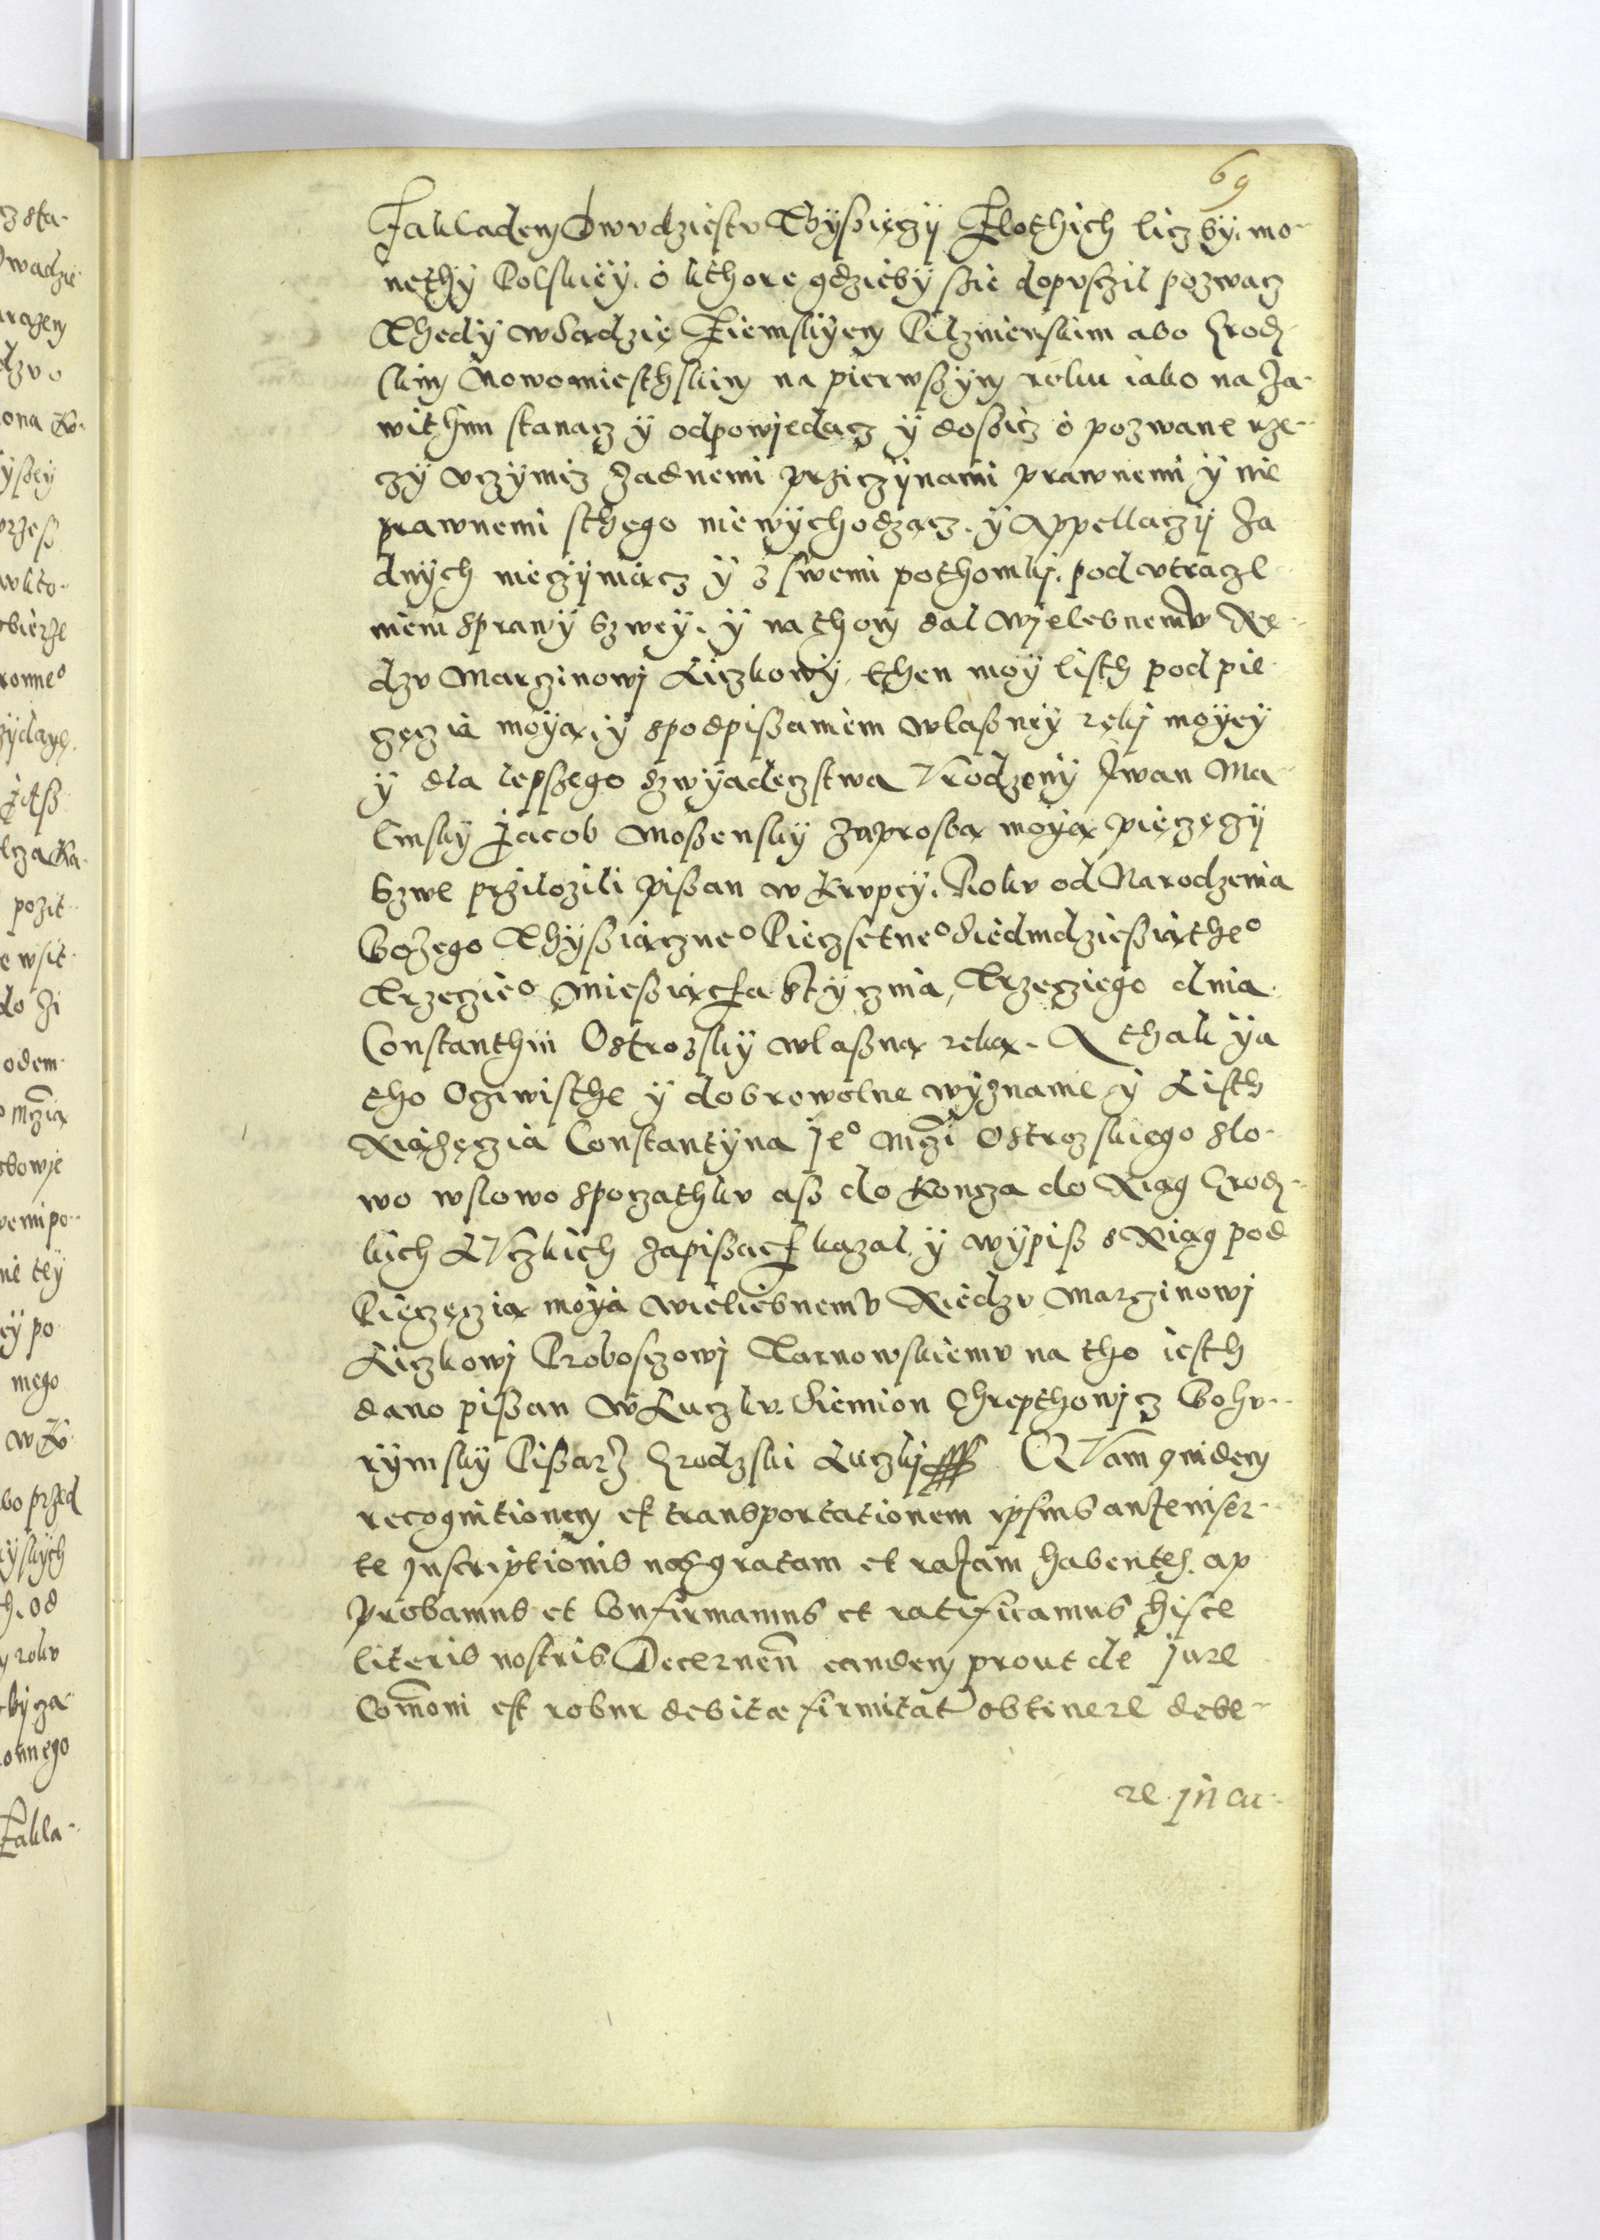 69
Zakladem Dwudziestu Thyssięczy Zlothich liczby mo-
nethy Polskiey. o kthore gdzieby szie dopusczil pozwacz
Thedy w Sądzie Ziemskyem Pilzmienskim abo Grodz-
skim Nowomiesthskim na pierwszym roku iako na Za-
withim stanacz y odpowjedacz y dossicz o pozwane rze-
czy uczymicz Zadnemi prziczynami prawnemi y nie
prawnemi sthego nie wychodzącz. y Appellaczij Za
dnych nieczyniącz y z swemi pothomkj. pod utracze
niem sprawy szwey. y na thom dal wjelebnemu Xię-
dzu Marczinowj Liczkowy then moy listh pod pie-
częzią moyą, y spodpissaniem wlassnéy rękj moyey
y dla lepszego szwyadecztwa Urodzony Jwan Ma-
linsky Jacob Mossensky Zaprosbą moyą pięczęczy
szwe przilozili pissan w Krupey. Roku od Narodzenia
Bożego Thyssiączneo Pieczsetneo Siedmdziessiątheo
Trzeczieo Miessiąca Styczma, Trzecziego dnia
Constanthin Ostrozsky wlassną reką. A thak ya
tho Oczwisthe y dobrowolne wyznanie y Listh
Xiążęczia Constantyna Jeo Mczi Ostrozskiego slo-
wo wslowo spoczathku asz do koncza do Xiąg Grodz-
kich LUczkich Zapissac kazal y wypiss s Xiąg pod
Pieczęczią moyą wieliebnemu Xiedzu Marczinowj
Liczkowj Proboszczowj Tarnowskiemu na tho iesth
dano pissan w Luczku. Siemion Chrepthowjcz Bohu-
rynsky Pissarz Grodzski Luczkj QUam quidem
recognitionem et transportationem ipsius anteinser-
te Inscriptionis nos gratam et ratam habentes. ap
probamus et Confirmamus et ratificamus hisce
literis nostris Decernen eandem prout de Jure
Comoni est robur debitæ firmitat obtinere debe-
re. Jn cu-